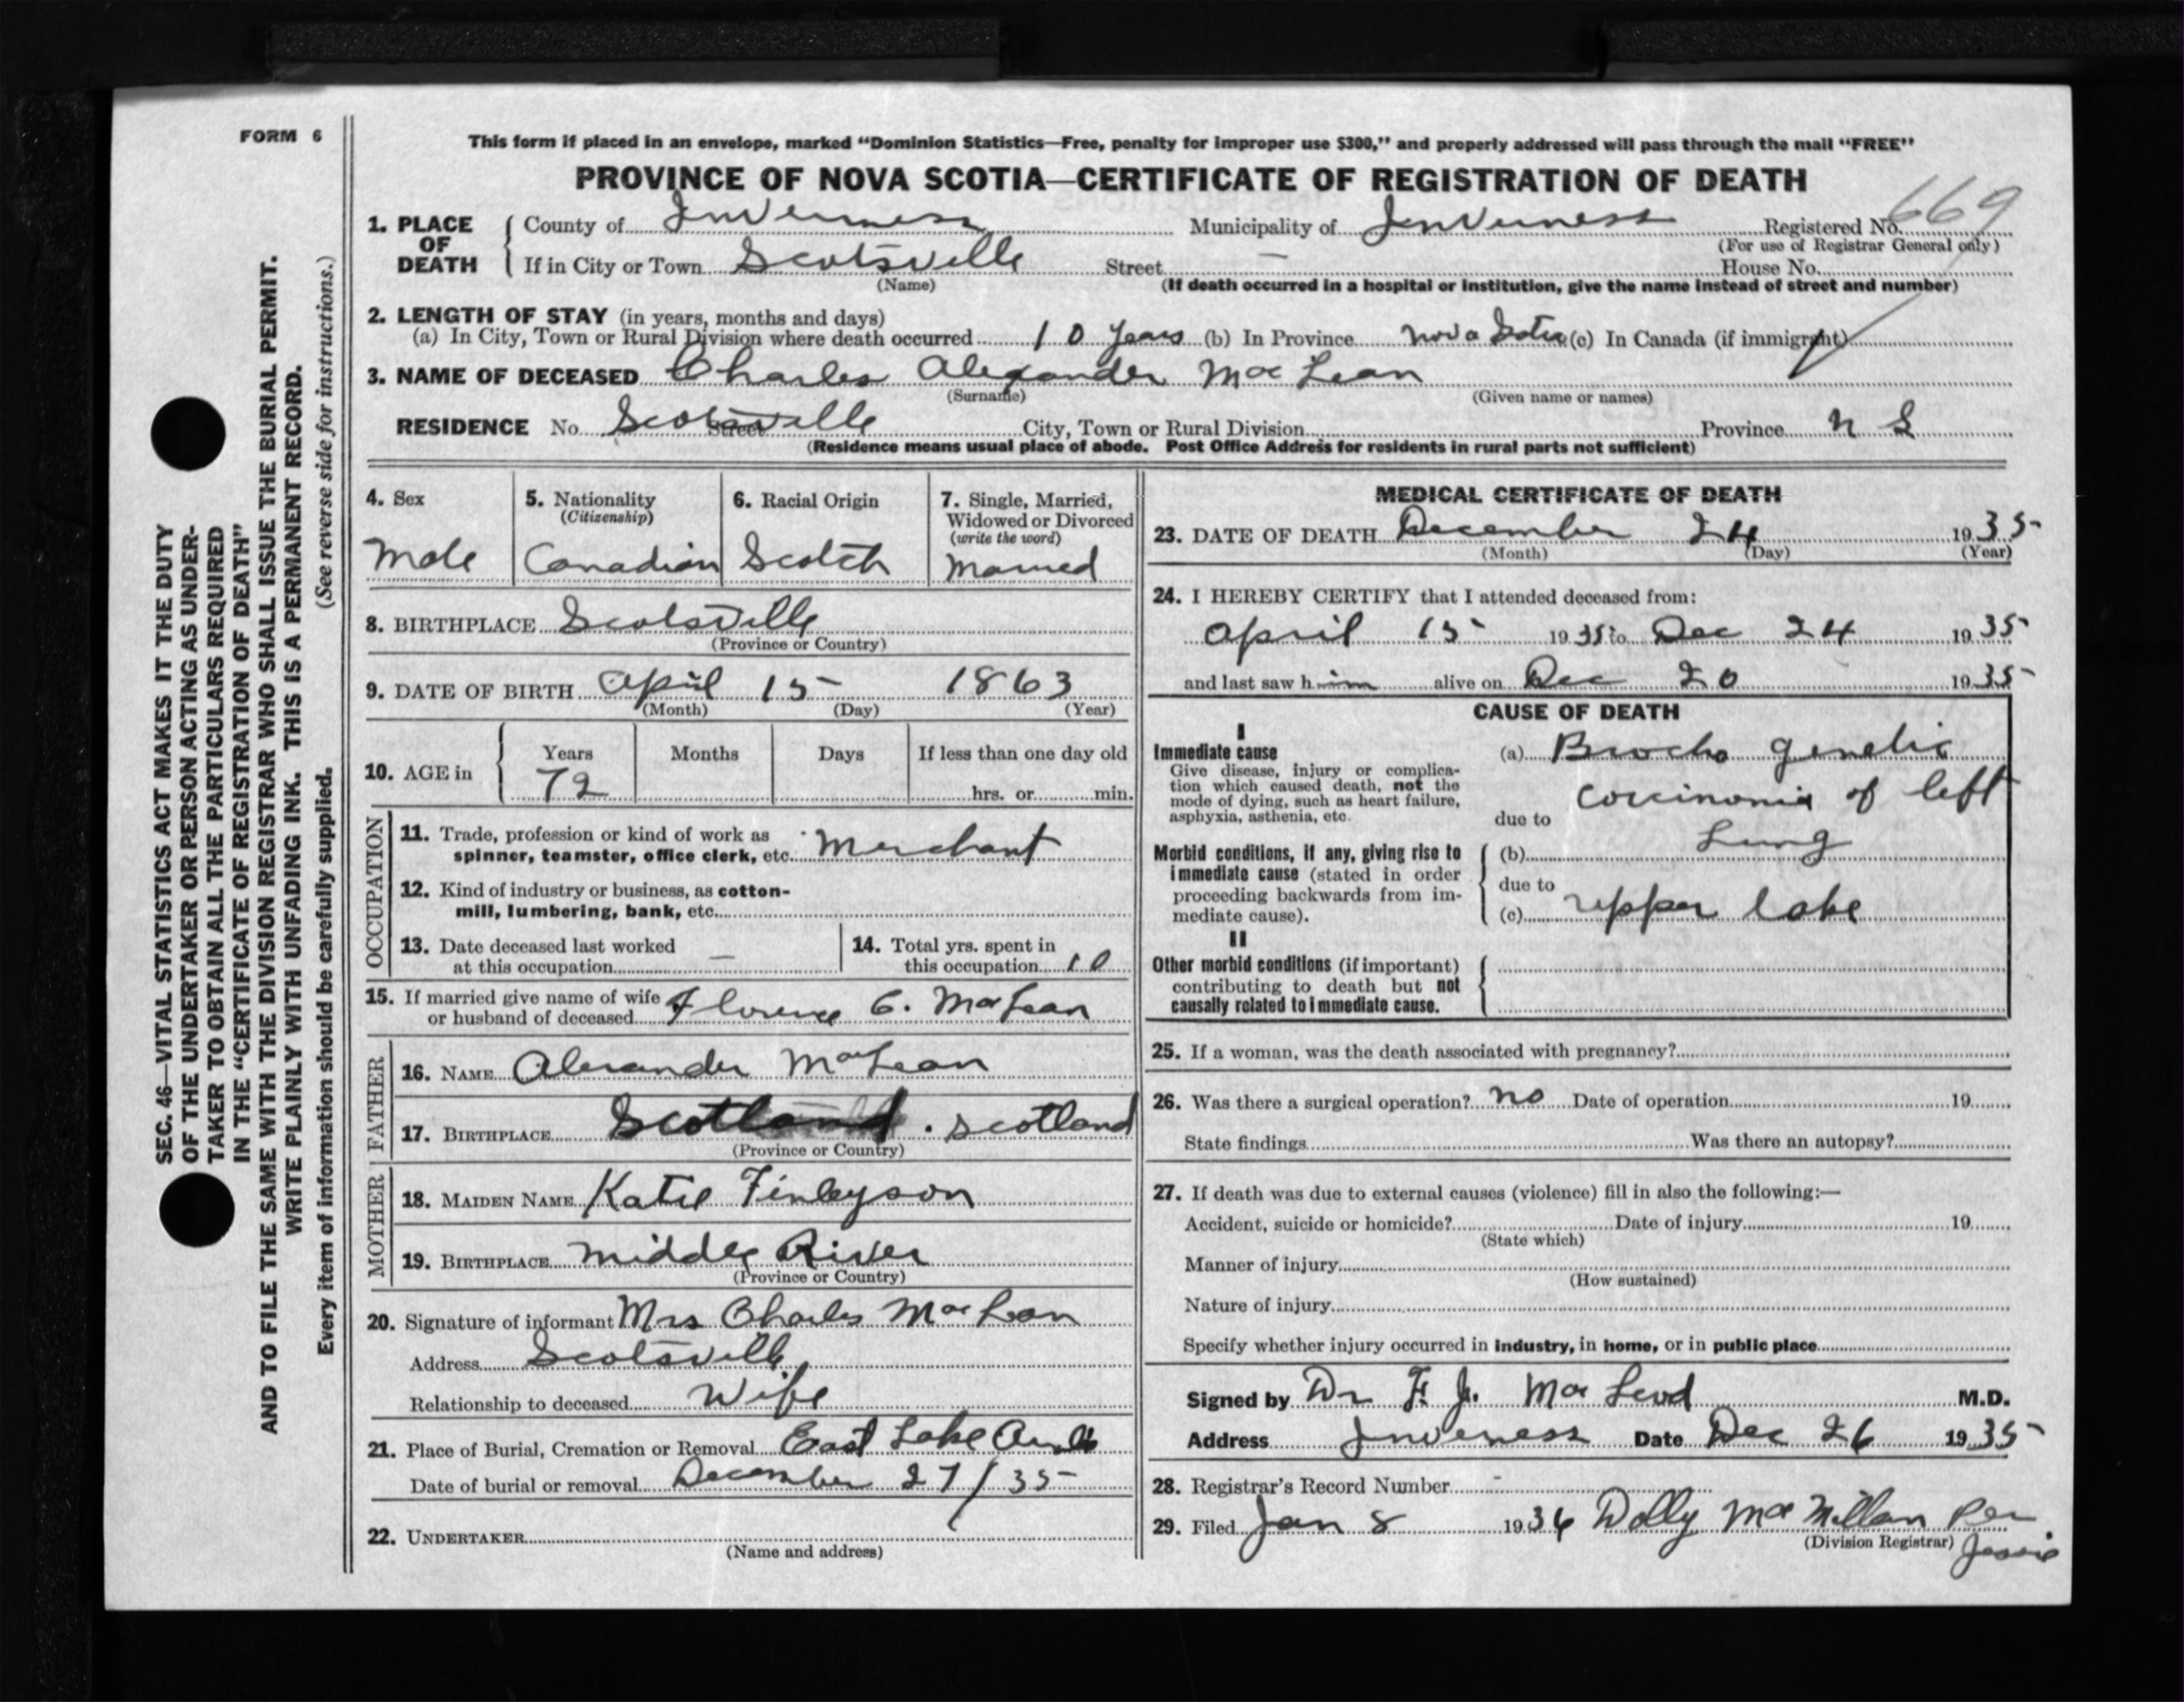 FORM 6
This form if placed in an envelope, marked "Dominion Statistics—Free, penalty for improper use $300," and properly addressed will pass through the mail "FREE"
PROVINCE OF NOVA SCOTIA—CERTIFICATE OF REGISTRATION OF DEATH
669
1. PLACE OF DEATH County of Inverness Municipality of Inverness Registered No.
(For use of Registrar General only)
If in City or Town Scotsville Street — House No.
(Name) (If death occurred in a hospital or institution, give the name instead of street and number)
2. LENGTH OF STAY (in years, months and days)
(a) In City, Town or Rural Division where death occurred 10 years (b) In Province Nova Scotia (c) In Canada (if immigrant)
3. NAME OF DECEASED Charles Alexander MacLean
(Surname) (Given name or names)
RESIDENCE No. Scotsville Street City, Town or Rural Division Province N S
(Residence means usual place of abode. Post Office Address for residents in rural parts not sufficient)
4. Sex
Male
5. Nationality
(Citizenship)
Canadian
6. Racial Origin
Scotch
7. Single, Married,
Widowed or Divorced
(write the word)
Married
8. BIRTHPLACE Scotsville
(Province or Country)
9. DATE OF BIRTH April 15 1863
(Month) (Day) (Year)
10. AGE in Years Months Days If less than one day old
72 hrs. or min.
OCCUPATION
11. Trade, profession or kind of work as
spinner, teamster, office clerk, etc. Merchant
12. Kind of industry or business, as cotton-
mill, lumbering, bank, etc.
13. Date deceased last worked
at this occupation —
14. Total yrs. spent in
this occupation 10
15. If married give name of wife
or husband of deceased Florence C. MacLean
FATHER
16. NAME Alexander MacLean
17. BIRTHPLACE Scotland . Scotland
(Province or Country)
MOTHER
18. MAIDEN NAME Katie Finlayson
19. BIRTHPLACE Middle River
(Province or Country)
20. Signature of informant Mrs Charles MacLean
Address Scotsville
Relationship to deceased Wife
21. Place of Burial, Cremation or Removal East Lake
Date of burial or removal December 27/35
22. UNDERTAKER
(Name and address)
MEDICAL CERTIFICATE OF DEATH
23. DATE OF DEATH December 24 1935
(Month) (Day) (Year)
24. I HEREBY CERTIFY that I attended deceased from:
April 15 1935 to Dec 24 1935
and last saw him alive on Dec 20 1935
CAUSE OF DEATH
I
Immediate cause
Give disease, injury or complica-
tion which caused death, not the
mode of dying, such as heart failure,
asphyxia, asthenia, etc.
(a) Broncho genetic
due to corcinomia of left
Morbid conditions, if any, giving rise to
immediate cause (stated in order
proceeding backwards from im-
mediate cause).
(b) Lung
due to
(c) upper lobe
II
Other morbid conditions (if important)
contributing to death but not
causally related to immediate cause.
25. If a woman, was the death associated with pregnancy?
26. Was there a surgical operation? no Date of operation 19
State findings Was there an autopsy?
27. If death was due to external causes (violence) fill in also the following:—
Accident, suicide or homicide? Date of injury 19
(State which)
Manner of injury
(How sustained)
Nature of injury
Specify whether injury occurred in industry, in home, or in public place
Signed by Dr F. J. MacLeod M.D.
Address Inverness Date Dec 26 1935
28. Registrar's Record Number -
29. Filed Jan 8 1936 Dolly MacMillan Per
(Division Registrar) Jessie
SEC. 46—VITAL STATISTICS ACT MAKES IT THE DUTY
OF THE UNDERTAKER OR PERSON ACTING AS UNDER-
TAKER TO OBTAIN ALL THE PARTICULARS REQUIRED
IN THE "CERTIFICATE OF REGISTRATION OF DEATH"
AND TO FILE THE SAME WITH THE DIVISION REGISTRAR WHO SHALL ISSUE THE BURIAL PERMIT.
WRITE PLAINLY WITH UNFADING INK. THIS IS A PERMANENT RECORD.
Every item of information should be carefully supplied. (See reverse side for instructions.)